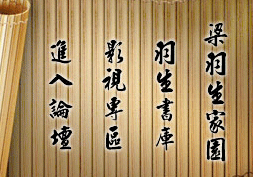 梁羽生家園
羽生書庫
影視專區
進入論壇